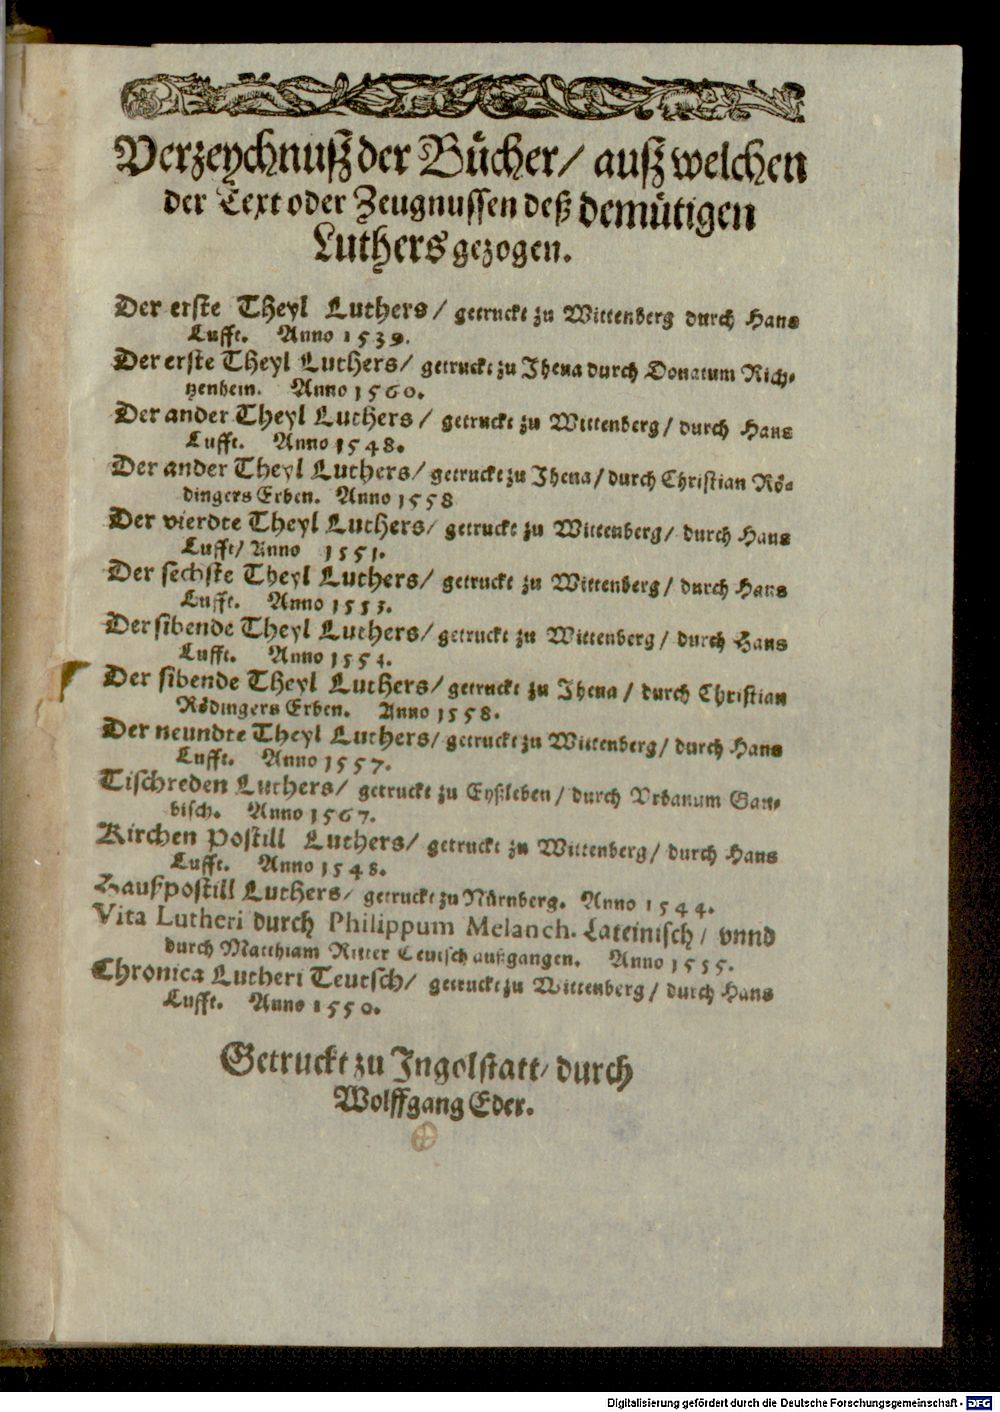 Verzeychnuß der Bücher/ auß welchen
der Text oder Zeugnussen deß demütigen
Luthers gezogen.
Der erste Theyl Luthers/ getruckt zu Wittenberg durch Hans
Lufft. Anno 1539.
Der erste Theyl Luthers/ getruckt zu Jhena durch Donatum Rich-
tzenhein. Anno 1560.
Der ander Theyl Luthers/ getruckt zu Wittenberg/ durch Hans
Lufft. Anno 1548.
Der ander Theyl Luthers/ getruckt zu Jhena/ durch Christian Rö-
dingers Erben. Anno 1558
Der vierdte Theyl Luthers/ getruckt zu Wittenberg/ durch Hans
Lufft/ Anno 1551.
Der sechste Theyl Luthers/ getruckt zu Wittenberg/ durch Hans
Lufft. Anno 1553.
Der sibende Theyl Luthers/ getruckt zu Wittenberg/ durch Hans
Lufft. Anno 1554.
Der sibende Theyl Luthers/ getruckt zu Jhena/ durch Christian
Rödingers Erben. Anno 1558.
Der neundte Theyl Luthers/ getruckt zu Wittenberg/ durch Hans
Lufft. Anno 1557.
Tischreden Luthers/ getruckt zu Eyßleben/ durch Vrbanum Gau-
bisch. Anno 1567.
Kirchen Postill Luthers/ getruckt zu Wittenberg/ durch Hans
Lufft. Anno 1548.
Haußpostill Luthers/ getruckt zu Nürnberg. Anno 1544.
Vita Lutheri durch Philippum Melanch. Lateinisch/ vnnd
durch Matthiam Ritter Teutsch außgangen. Anno 1555.
Chronica Lutheri Teutsch/ getruckt zu Wittenberg/ durch Hans
Lufft. Anno 1550.
Getruckt zu Ingolstatt/ durch
Wolffgang Eder.
Digitalisierung gefördert durch die Deutsche Forschungsgemeinschaft - DFG